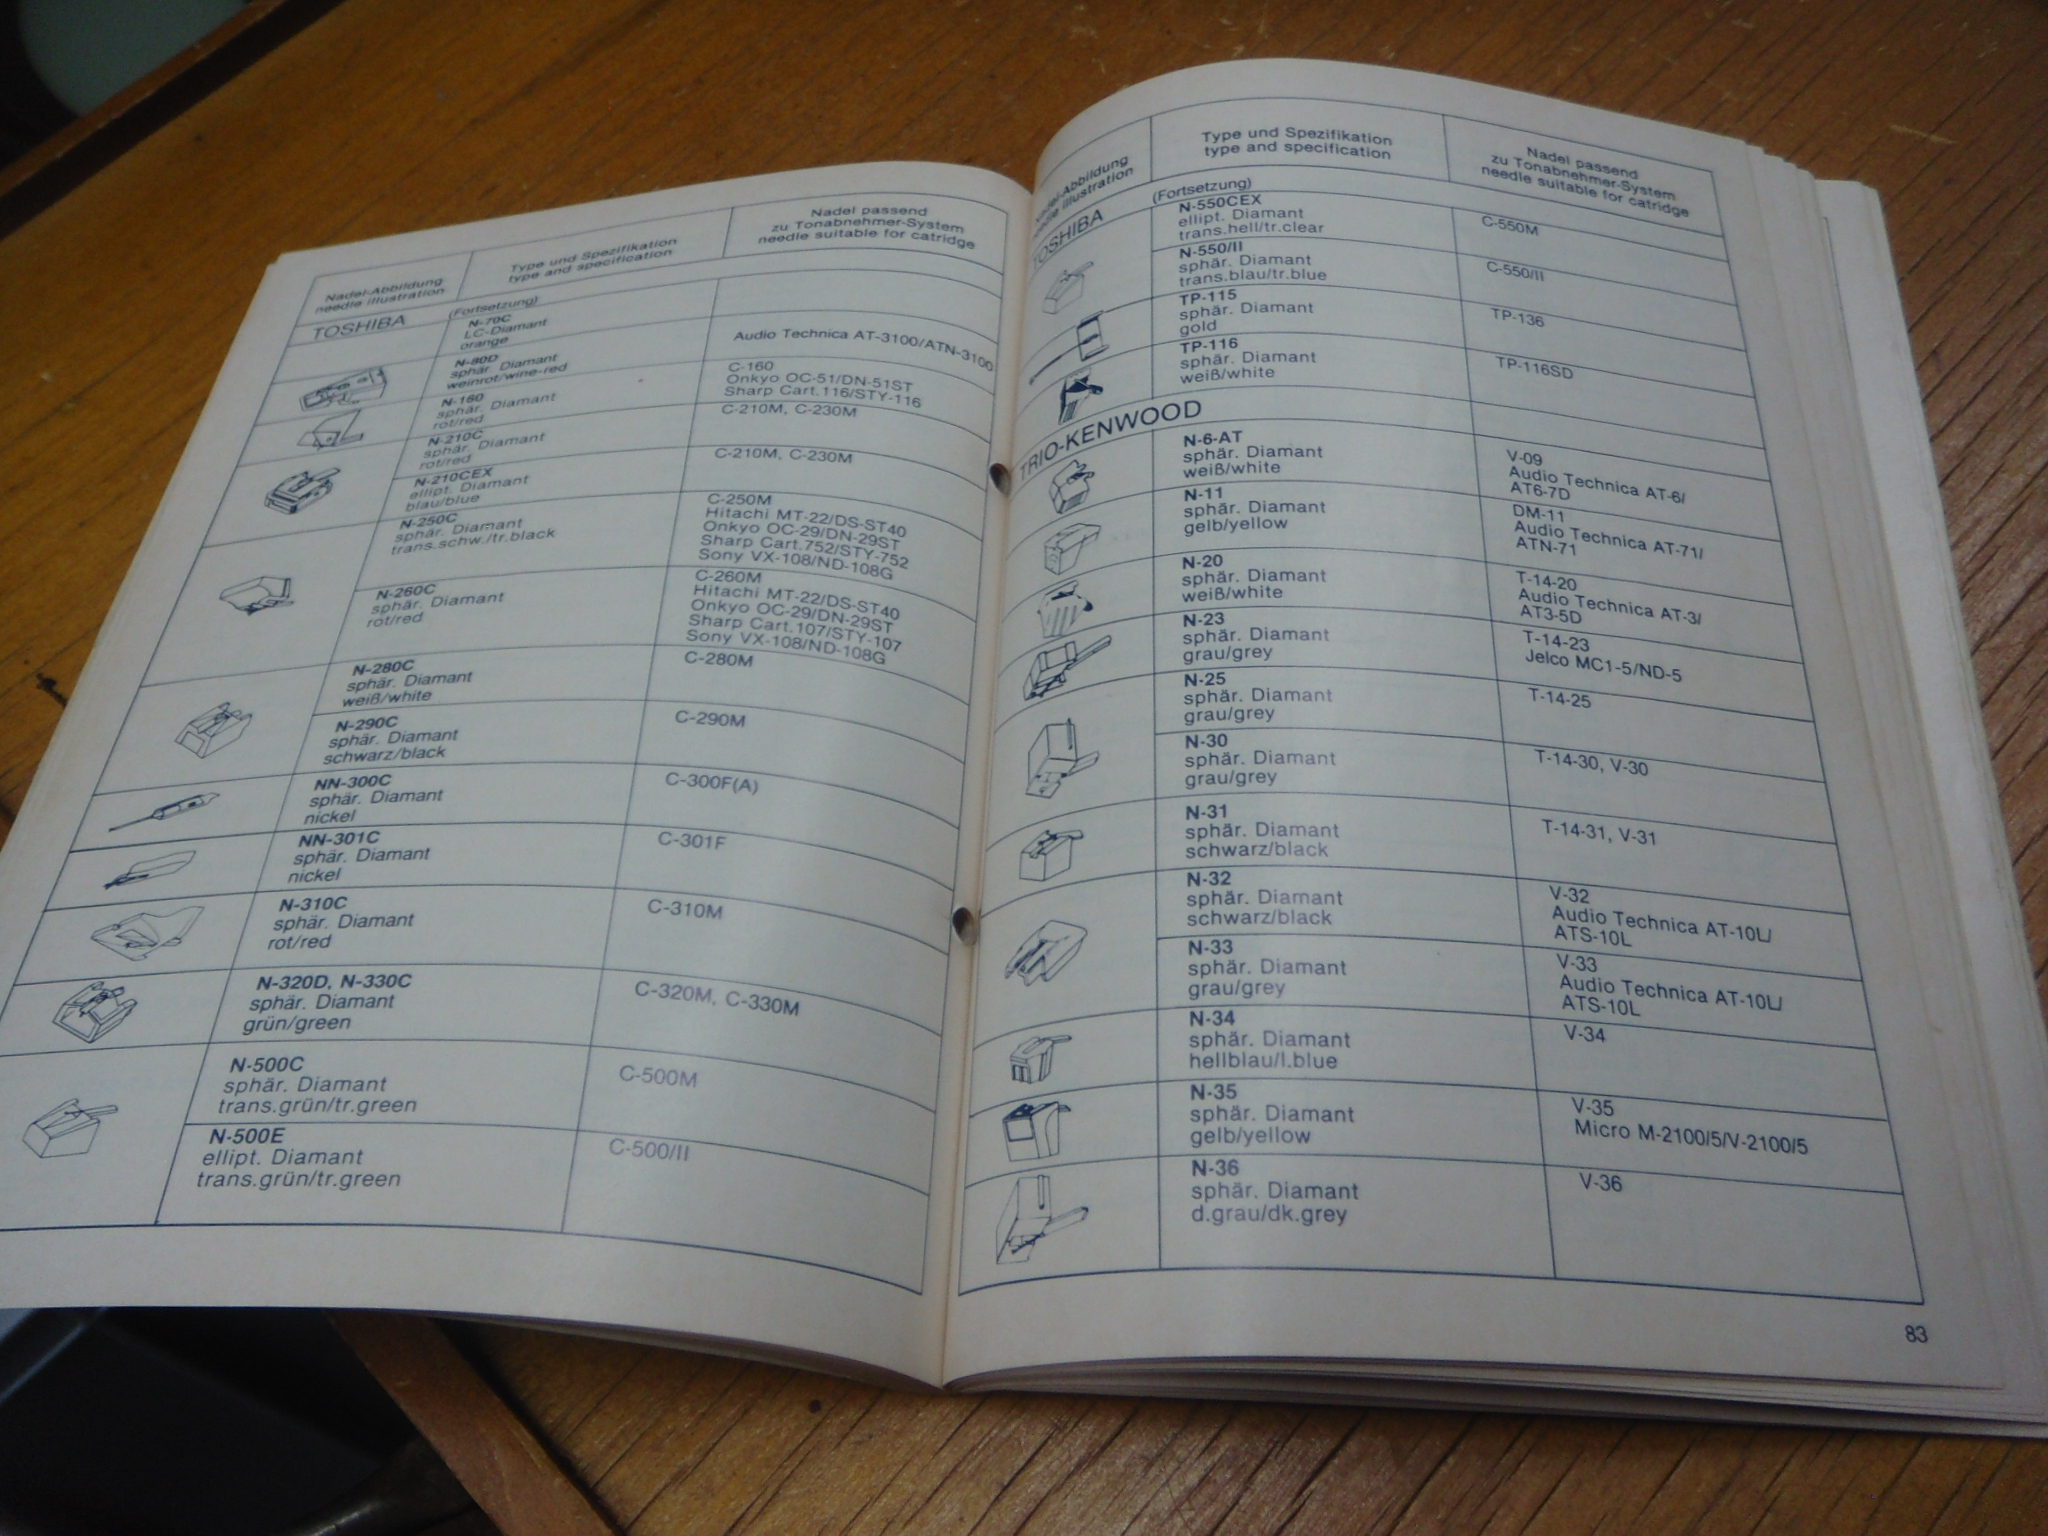 Nadel-Abbildung
needle illustration
Type und Spezifikation
type and specification
Nadel passend
zu Tonabnehmer-System
needle suitable for catridge
TOSHIBA
(Fortsetzung)
N-70C
LC-Diamant
orange
N-80D
sphär. Diamant
weinrot/wine-red
Audio Technica AT-3100/ATN-3100
N-160
sphär. Diamant
rot/red
C-160
Onkyo OC-51/DN-51ST
Sharp Cart.116/STY-116
N-210C
sphär. Diamant
rot/red
C-210M, C-230M
N-210CEX
ellipt. Diamant
blau/blue
C-210M, C-230M
N-250C
sphär. Diamant
trans.schw./tr.black
C-250M
Hitachi MT-22/DS-ST40
Onkyo OC-29/DN-29ST
Sharp Cart.752/STY-752
Sony VX-108/ND-108G
N-260C
sphär. Diamant
rot/red
C-260M
Hitachi MT-22/DS-ST40
Onkyo OC-29/DN-29ST
Sharp Cart.107/STY-107
Sony VX-108/ND-108G
N-280C
sphär. Diamant
weiß/white
C-280M
N-290C
sphär. Diamant
schwarz/black
C-290M
NN-300C
sphär. Diamant
nickel
C-300F(A)
NN-301C
sphär. Diamant
nickel
C-301F
N-310C
sphär. Diamant
rot/red
C-310M
N-320D, N-330C
sphär. Diamant
grün/green
C-320M, C-330M
N-500C
sphär. Diamant
trans.grün/tr.green
C-500M
N-500E
ellipt. Diamant
trans.grün/tr.green
C-500/II
Nadel-Abbildung
needle illustration
Type und Spezifikation
type and specification
Nadel passend
zu Tonabnehmer-System
needle suitable for catridge
TOSHIBA
(Fortsetzung)
N-550CEX
ellipt. Diamant
trans.hell/tr.clear
C-550M
N-550/II
sphär. Diamant
trans.blau/tr.blue
C-550/II
TP-115
sphär. Diamant
gold
TP-136
TP-116
sphär. Diamant
weiß/white
TP-116SD
TRIO-KENWOOD
N-6-AT
sphär. Diamant
weiß/white
V-09
Audio Technica AT-6/
AT6-7D
N-11
sphär. Diamant
gelb/yellow
DM-11
Audio Technica AT-71/
ATN-71
N-20
sphär. Diamant
weiß/white
T-14-20
Audio Technica AT-3/
AT3-5D
N-23
sphär. Diamant
grau/grey
T-14-23
Jelco MC1-5/ND-5
N-25
sphär. Diamant
grau/grey
T-14-25
N-30
sphär. Diamant
grau/grey
T-14-30, V-30
N-31
sphär. Diamant
schwarz/black
T-14-31, V-31
N-32
sphär. Diamant
schwarz/black
V-32
Audio Technica AT-10L/
ATS-10L
N-33
sphär. Diamant
grau/grey
V-33
Audio Technica AT-10L/
ATS-10L
N-34
sphär. Diamant
hellblau/l.blue
V-34
N-35
sphär. Diamant
gelb/yellow
V-35
Micro M-2100/5/V-2100/5
N-36
sphär. Diamant
d.grau/dk.grey
V-36
83